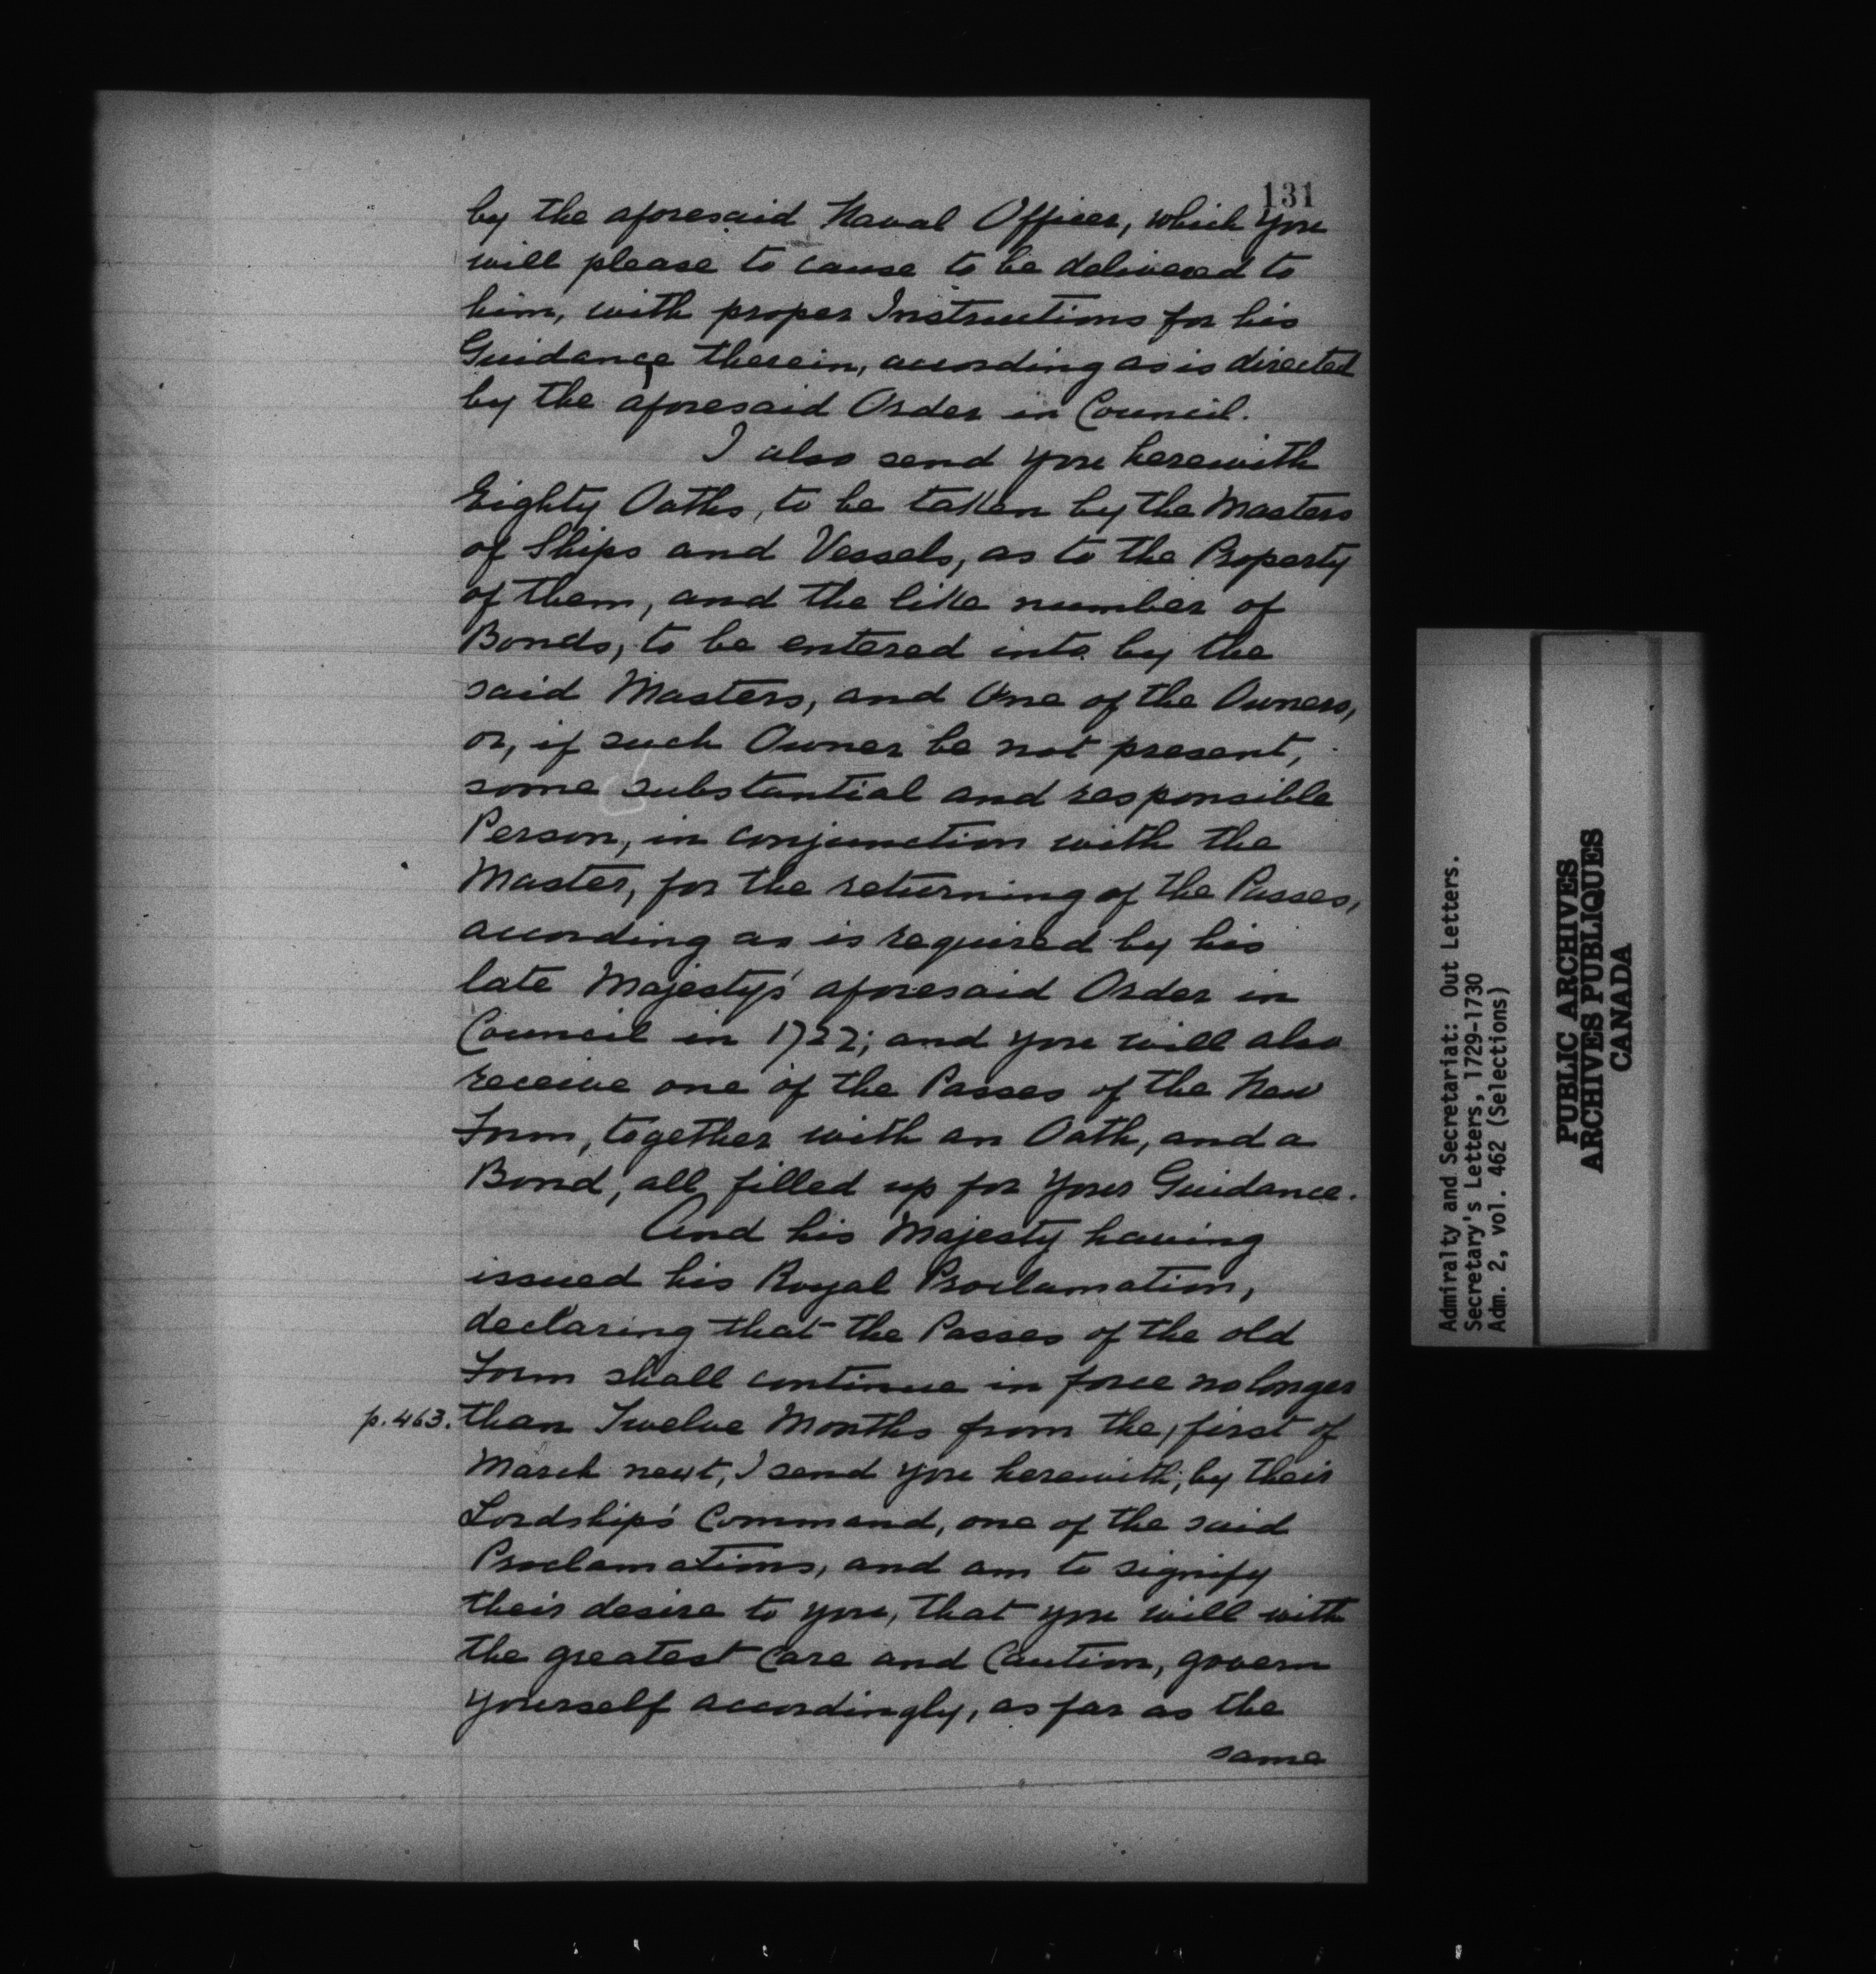 131
by the aforesaid Naval Officer, which you
will please to cause to be delivered to
him, with proper Instructions for his
Guidance therein, according as is directed
by the aforesaid Order in Council.
I also send you herewith
Eighty Oaths, to be taken by the Masters
of Ships and Vessels, as to the Property
of them, and the like number of
Bonds, to be entered into by the
said Masters, and One of the Owners,
or, if such Owner be not present,
some substantial and responsible
Person, in conjunction with the
Master, for the returning of the Passes,
according as is required by his
late Majesty's aforesaid Order in
Council in 1722; and you will also
receive one of the Passes of the New
Form, together with an Oath, and a
Bond, all filled up for Your Guidance.
And his Majesty having
issued his Royal Proclamation,
declaring that the Passes of the old
Form shall continue in force no longer
p. 463. than Twelve Months from the, first of
March next, I send you herewith, by their
Lordship's Command, one of the said
Proclamations, and am to signify
their desire to you, that you will with
the greatest Care and Caution, govern
yourself accordingly, as far as the
same
Admiralty and Secretariat: Out Letters.
Secretary's Letters, 1729-1730
Adm. 2, vol. 462 (Selections)
PUBLIC ARCHIVES
ARCHIVES PUBLIQUES
CANADA